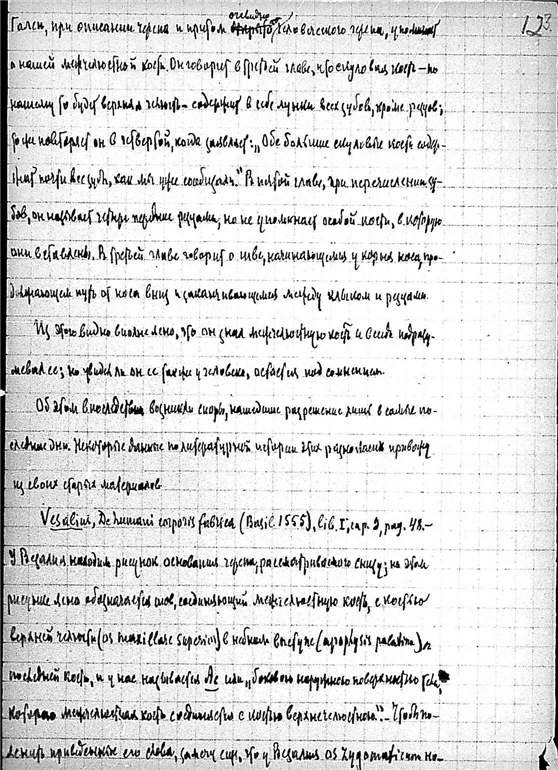 123.
очевидно
Гален, при описании черепа и притом человеческого черепа, упоминает
о нашей межчелюстной кости. Он говорит в третьей главе, что скуловая кость – по
нашему то будет верхняя челюсть – содержит в себе лунки всех зубов, кроме резцов;
то же повторяет он в четвертой, когда заявляет: „Обе большие скуловые кости содер-
жат почти все зубы, как мы уже сообщали." В пятой главе, при перечислении зу-
бов, он называет четыре передние резцами, но не упоминает особой кости, в которую
они вставлены. В третьей главе говорит о шве, начинающемся у корня носа, про-
должающем путь от носа вниз и заканчивающемся между клыком и резцами.
Из этого видно вполне ясно, что он знал межчелюстную кость и всегда подразу-
мевал ее; но увидел ли он ее также у человека, остается под сомнением.
Об этом впоследствии возникли споры, нашедшие разрешение лишь в самые по-
следние дни. Некоторые данные по литературной истории этих разногласий привожу
из своих старых материалов
Vesalius, De humani corporis fabrica (Basil. 1555), lib. I, cap. 9, pag. 48. –
У Везалия находим рисунок основания черепа, рассматриваемого снизу; на этом
рисунке ясно обозначается шов, соединяющий межчелюстную кость, с костью
верхней челюсти (os maxillare superius) в небном выступе (apophysis palatina)
последней кости, и у нас называется „бокового наружного поверхностью тела,
которою межчелюстная кость соединяется с костью верхнечелюстной." – Чтобы по-
яснить приведенные его слова, замечу еще, что у Везалия os zygomaticum но-